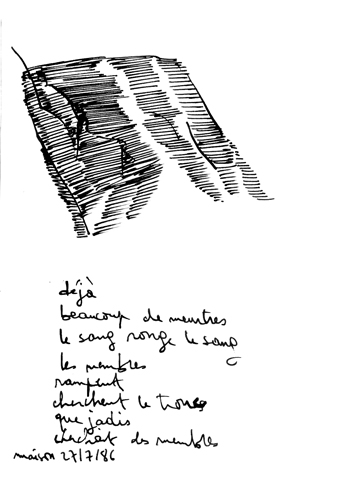 déjà
beaucoup de meurtres
le sang ronge le sang
les membres
rampent
cherchent le tronc
que jadis
des membres
maison 27/7/86